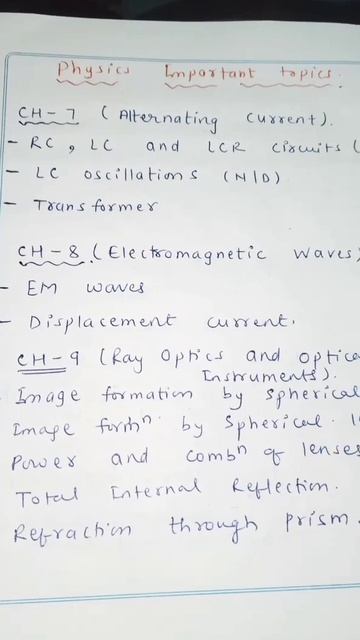 Physics Important topics.
CH-7 (Alternating current).
- RC, LC and LCR circuits (
- LC oscillations (N/D)
- Transformer
CH-8 (Electromagnetic Waves)
- EM waves
- Displacement current.
CH-9 (Ray Optics and Optica
Instruments).
Image formation by Spherical
Image formⁿ by Spherical
Power and combⁿ of lenses
Total Internal Reflection.
Refraction through prism.